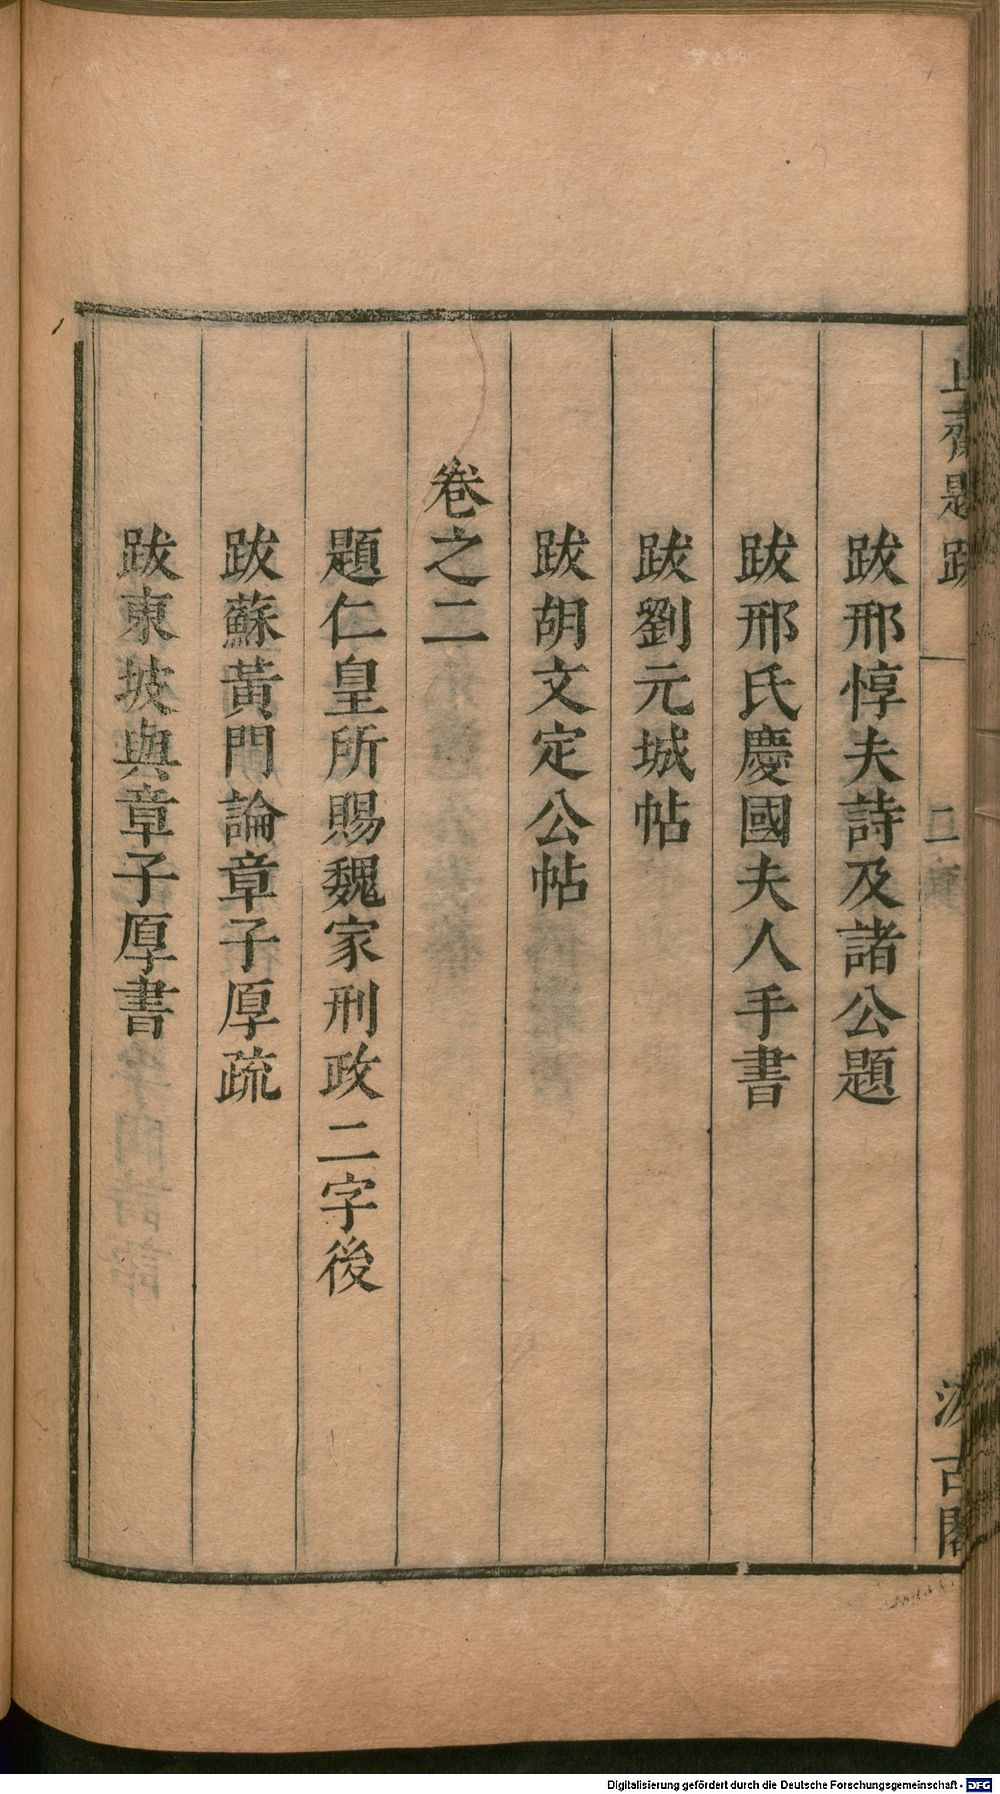 止齋題跋 二 汲古閣
跋邢惇夫詩及諸公題
跋邢氏慶國夫人手書
跋劉元城帖
跋胡文定公帖
卷之二
題仁皇所賜魏家刑政二字後
跋蘇黃門論章子厚疏
跋東坡與章子厚書
Digitalisierung gefördert durch die Deutsche Forschungsgemeinschaft - DFG